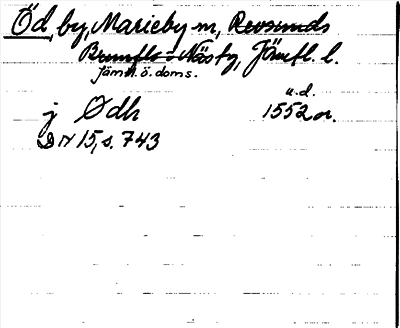 Öd, by, Marieby sn, Revsunds
Brunflo o Näs ty, Jämtl. l.
jämtl. ö. doms.
u.d.
j Ödh 1552 or.
DN 15, s. 743